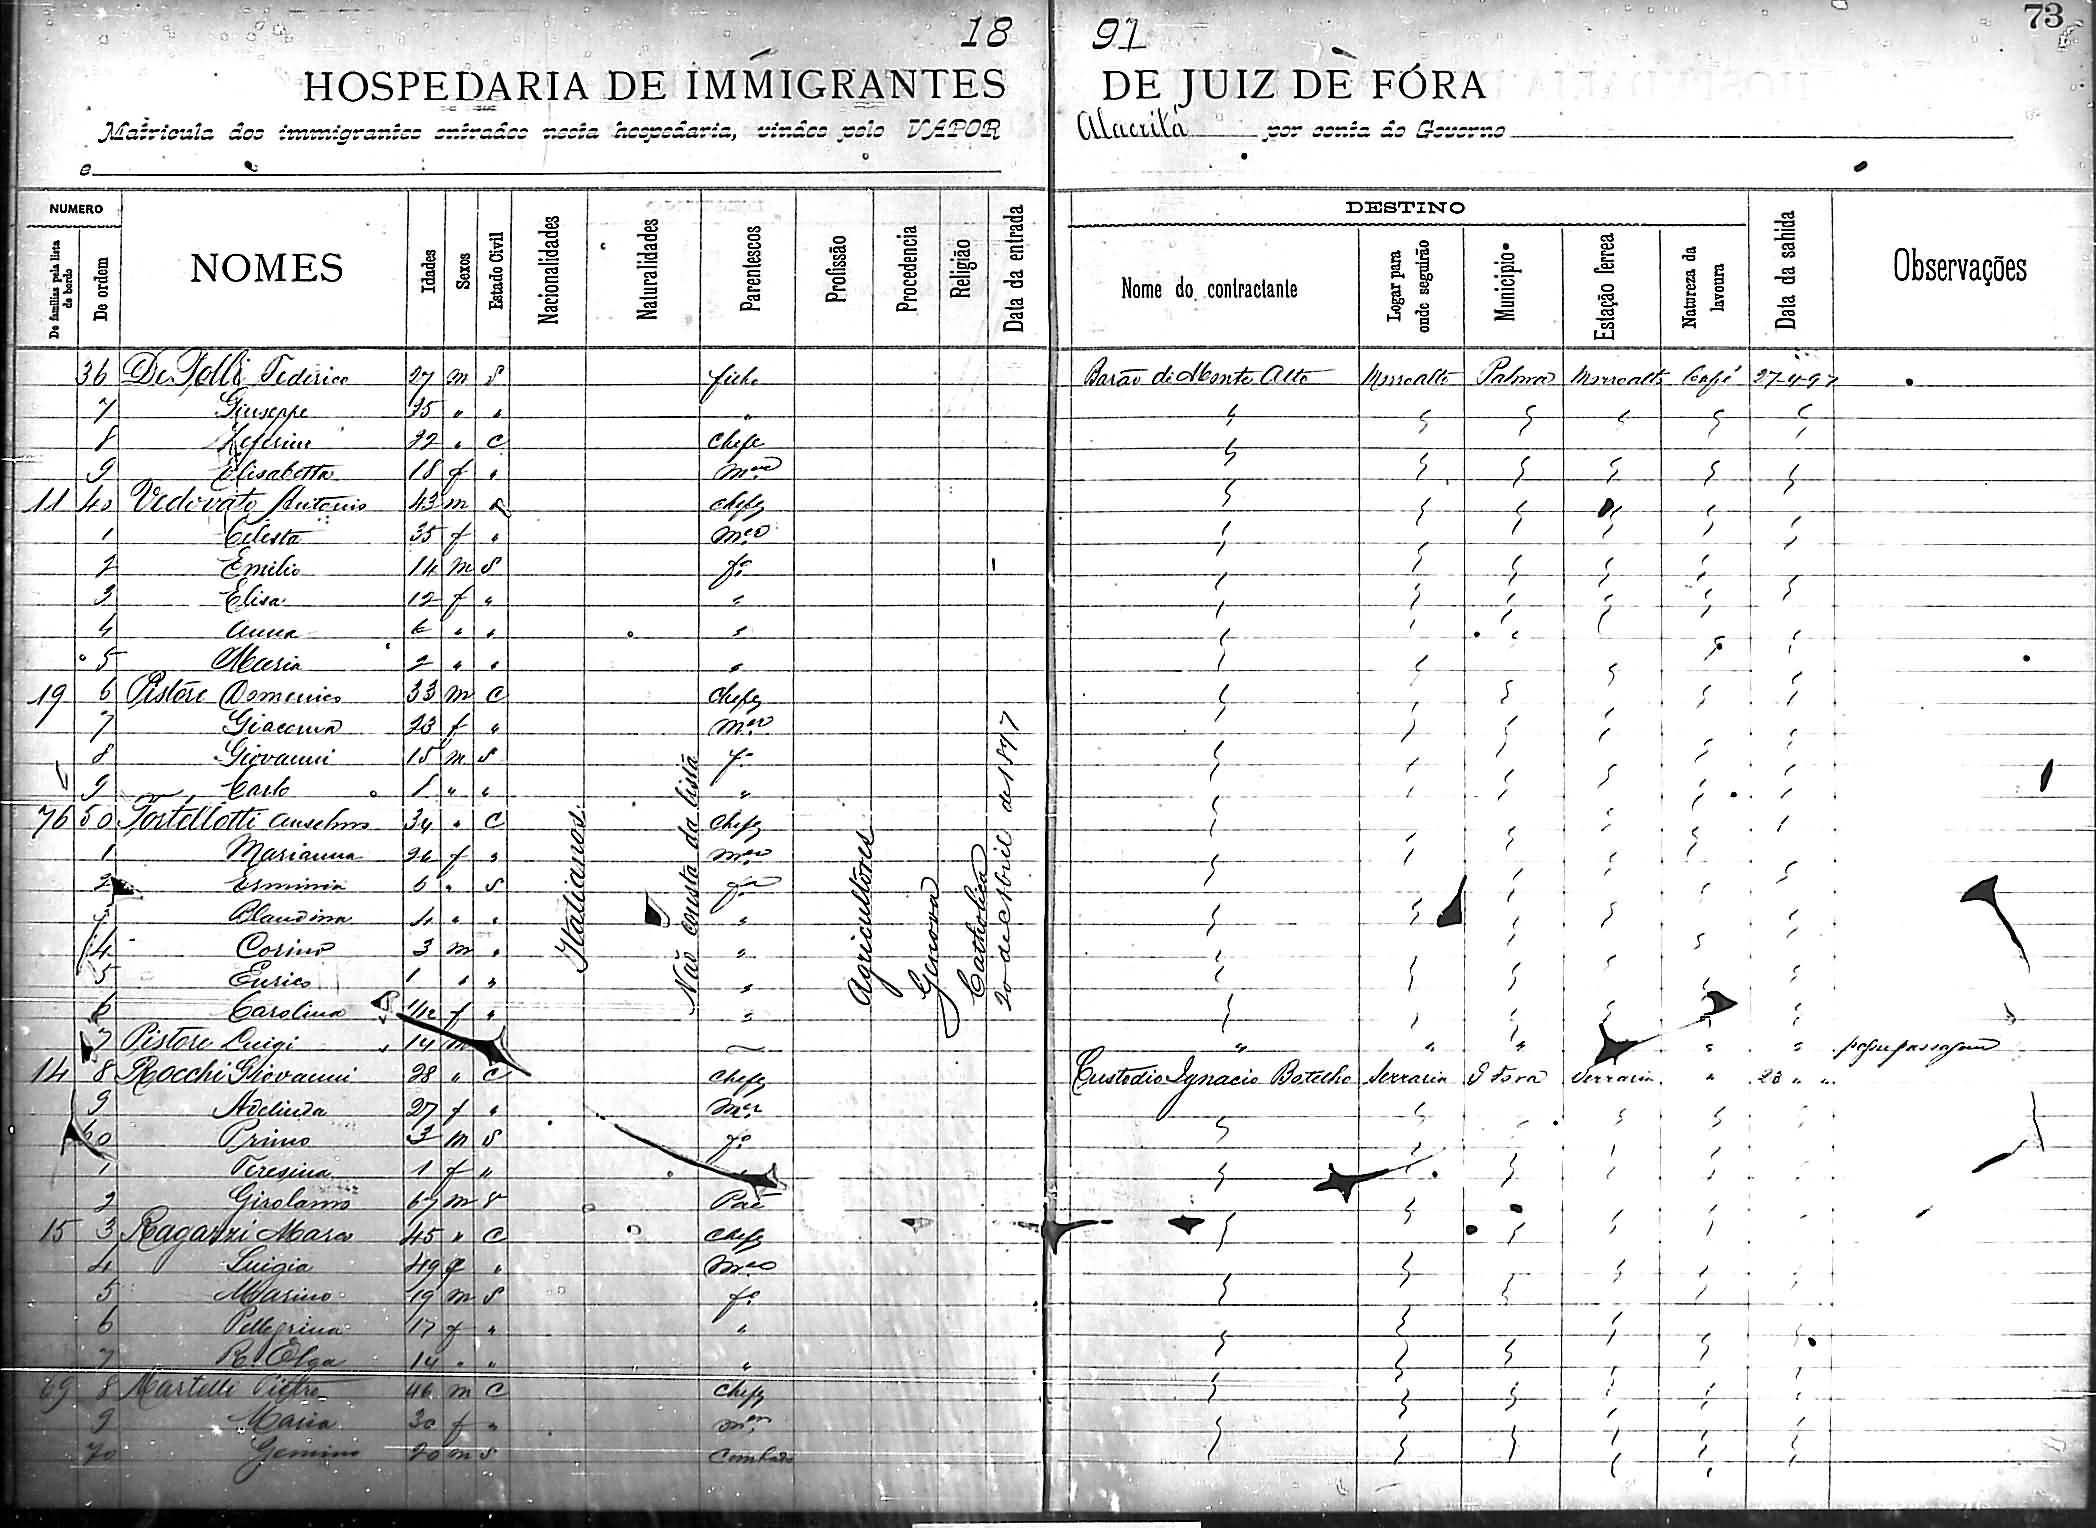 18 97 73
HOSPEDARIA DE IMMIGRANTES DE JUIZ DE FÓRA
Matricula dos immigrantes entrados nesta hospedaria, vindos pelo VAPOR Alacritá por conta do Governo
e
NUMERO DESTINO
De familias pela lista de bordo De ordem NOMES Idades Sexos Estado Civil Nacionalidades Naturalidades Parentescos Profissão Procedencia Religião Data da entrada Nome do contractante Logar para onde seguirão Municipio Estação ferrea Natureza da lavoura Data da sahida Observações
36 Federico 27 m S filho Barão de Monte Alto Morroalto Palma Morroalto Café 27-4-97
7 Giuseppe 25 " " "
8 22 " C Chefe
9 Elisabetta 18 f " Mer
11 40 Vedovato Antonio 43 m chefe
1 Celesta 35 f " Mer
2 Emilio 14 m S fo
3 Elisa 12 f " "
4 Anna 6 " " "
5 Maria 2 " " "
19 6 Pistore Domenico 33 m C Chefe
7 Giacoma 23 f " Mer
8 Giovanni 15 m S fo
9 Carlo 1 " " "
76 50 Tortellotti Anselmo 34 " C Chefe
1 Marianna 26 f " mer
2 Erminia 6 " S fa
Blandina 4 " " "
4 Corino 3 m " "
5 Enrico 1 " " "
6 Carolina 1/12 f " "
7 Pistore Luigi 14 m " " " " "
14 8 Rocchi Giovanni 28 " C Chefe Custodio Ignacio Botelho Serraria Serraria " 28 " "
9 Adelinda 27 f " Mer
60 Primo 3 m S fo
1 Teresina 1 f "
2 Girolamo 67 m Pae
15 3 Ragazzi Marco 45 " C Chefe
4 Luigia 49 f " Mer
5 Marino 19 m S fo
6 Pellegrina 17 f " "
7 R. Olga 14 " " "
69 8 Martelli Pietro 46 m C Chefe
9 Maria 30 f " mer
70 Gemino 20 m S Cunhado
Italianos
Não consta da lista
Agricultores
Genova
Catholica
20 de Abril de 1897